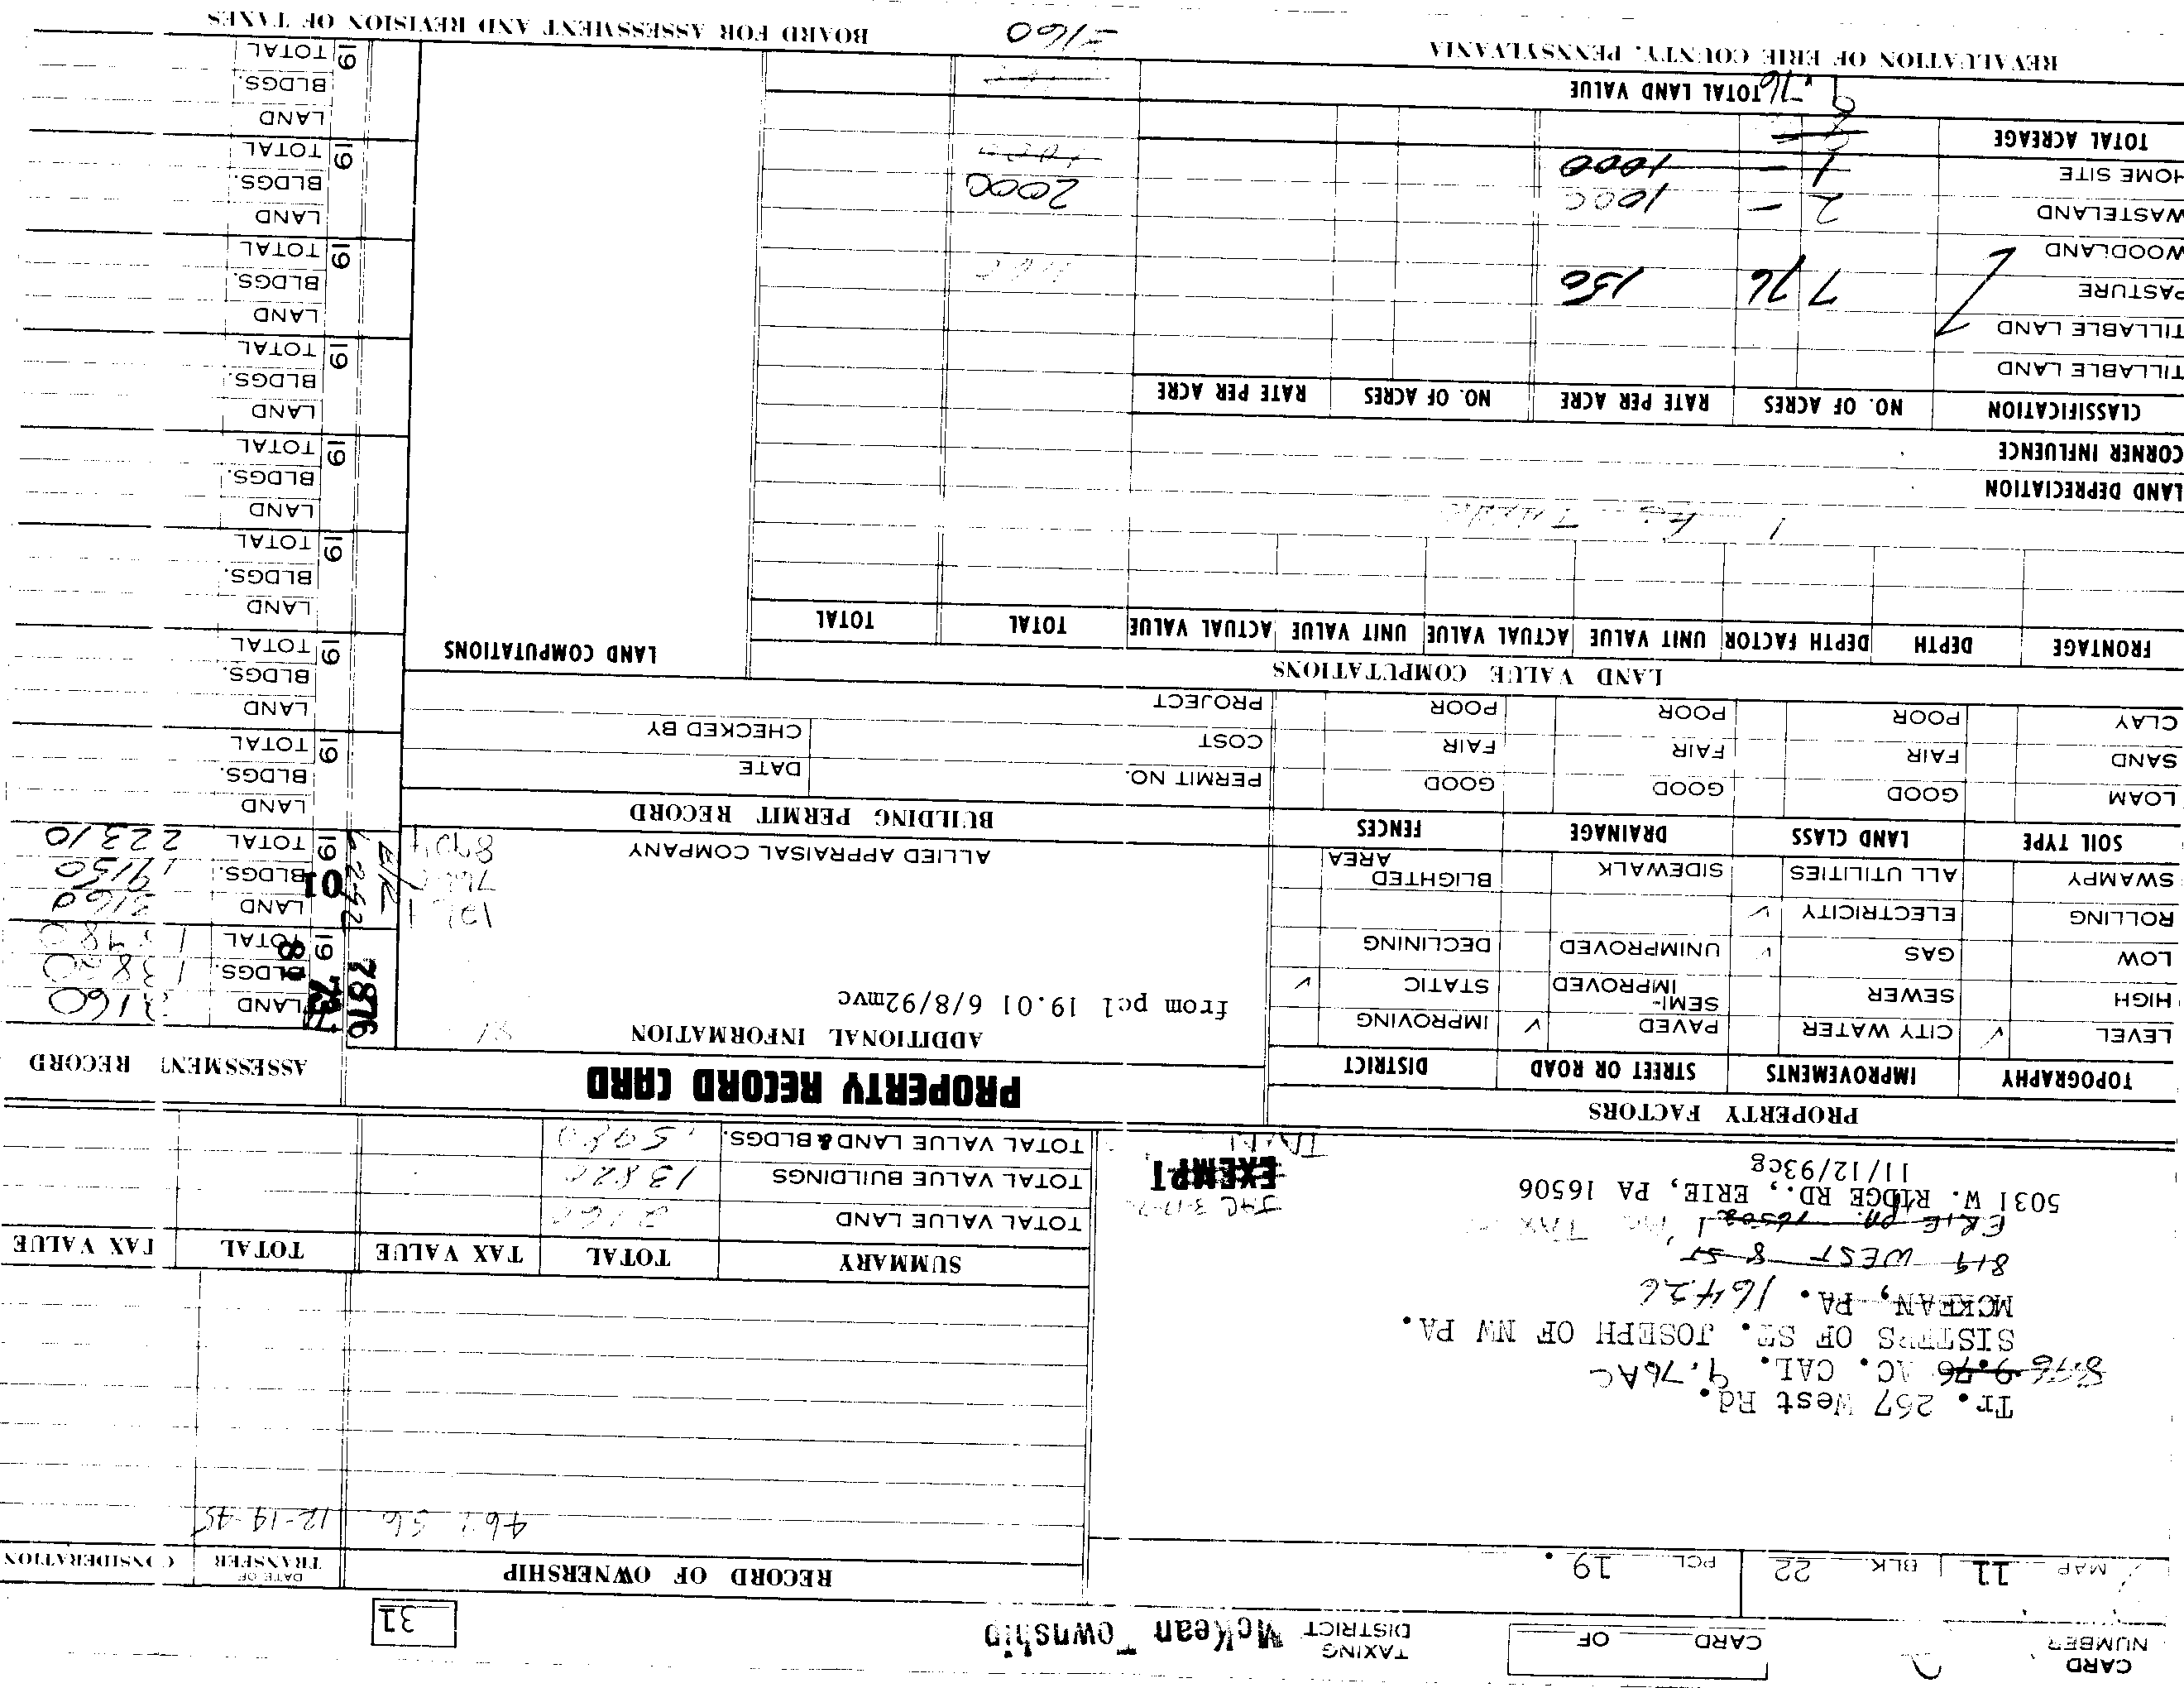 CARD NUMBER
CARD OF
TAXING DISTRICT McKean Township
31
MAP 11 BLK. 22 PCL. 19.
RECORD OF OWNERSHIP
DATE OF TRANSFER
CONSIDERATION
12-19-45
Tr. 267 West Rd.
8.76 9.76 AC. CAL. 9.76AC
SISTERS OF ST. JOSEPH OF NW PA.
MCKEAN, PA. 16426
819 WEST 8 ST
ERIE PA. 16502
5031 W. RIDGE RD., ERIE, PA 16506
11/12/93cg
EXEMPT
SUMMARY TOTAL TAX VALUE TOTAL TAX VALUE
TOTAL VALUE LAND 2160
TOTAL VALUE BUILDINGS 13820
TOTAL VALUE LAND & BLDGS. 15980
PROPERTY FACTORS
TOPOGRAPHY IMPROVEMENTS STREET OR ROAD DISTRICT
LEVEL ✓ CITY WATER PAVED ✓ IMPROVING
HIGH SEWER SEMI-IMPROVED STATIC ✓
LOW GAS ✓ UNIMPROVED DECLINING
ROLLING ELECTRICITY ✓
SWAMPY ALL UTILITIES SIDEWALK BLIGHTED AREA
SOIL TYPE LAND CLASS DRAINAGE FENCES
LOAM GOOD GOOD GOOD
SAND FAIR FAIR FAIR
CLAY POOR POOR POOR
PROPERTY RECORD CARD
ADDITIONAL INFORMATION
81
from pcl 19.01 6/8/92mvc
ALLIED APPRAISAL COMPANY
BUILDING PERMIT RECORD
PERMIT NO. DATE
COST CHECKED BY
PROJECT
ASSESSMENT RECORD
7876
LAND 2160
BLDGS. 13820
19 TOTAL 15980
01
62252
LAND 3160
BLDGS. 19150
19 TOTAL 22310
LAND
BLDGS.
19 TOTAL
LAND
BLDGS.
19 TOTAL
LAND
BLDGS.
19 TOTAL
LAND
BLDGS.
19 TOTAL
LAND
BLDGS.
19 TOTAL
LAND
BLDGS.
19 TOTAL
LAND
BLDGS.
19 TOTAL
LAND
BLDGS.
19 TOTAL
LAND VALUE COMPUTATIONS
FRONTAGE DEPTH DEPTH FACTOR UNIT VALUE ACTUAL VALUE UNIT VALUE ACTUAL VALUE TOTAL TOTAL
LAND COMPUTATIONS
LAND DEPRECIATION
CORNER INFLUENCE
CLASSIFICATION NO. OF ACRES RATE PER ACRE NO. OF ACRES RATE PER ACRE
TILLABLE LAND
TILLABLE LAND
PASTURE 7 76 150
WOODLAND
WASTELAND 2 - 1000 2000
HOME SITE 1 - 1000 1000
TOTAL ACREAGE 9 76
TOTAL LAND VALUE
3160
REVALUATION OF ERIE COUNTY, PENNSYLVANIA
BOARD FOR ASSESSMENT AND REVISION OF TAXES